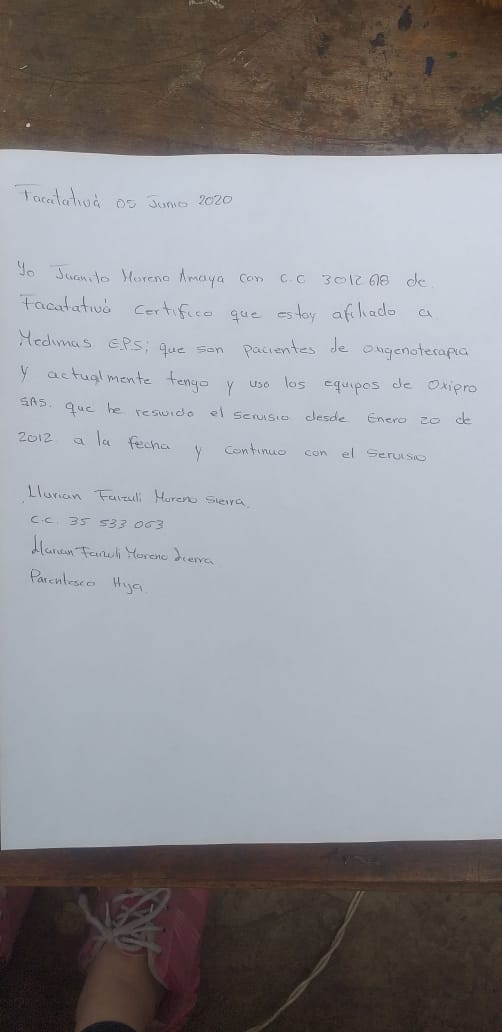 Facatativá 05 Junio 2020
Yo Juanito Moreno Amaya con C.C 301268 de
Facatativá Certifico que estoy afiliado a
Medimas E.P.S; que son pacientes de oxigenoterapia
y actualmente tengo y uso los equipos de Oxipro
SAS. que he resivido el servisio desde Enero 20 de
2012 a la fecha y continuo con el servisio
Faizuli Moreno Sierra.
C.C. 35 533 063
Faizuli Moreno Sierra
Parentesco Hija.